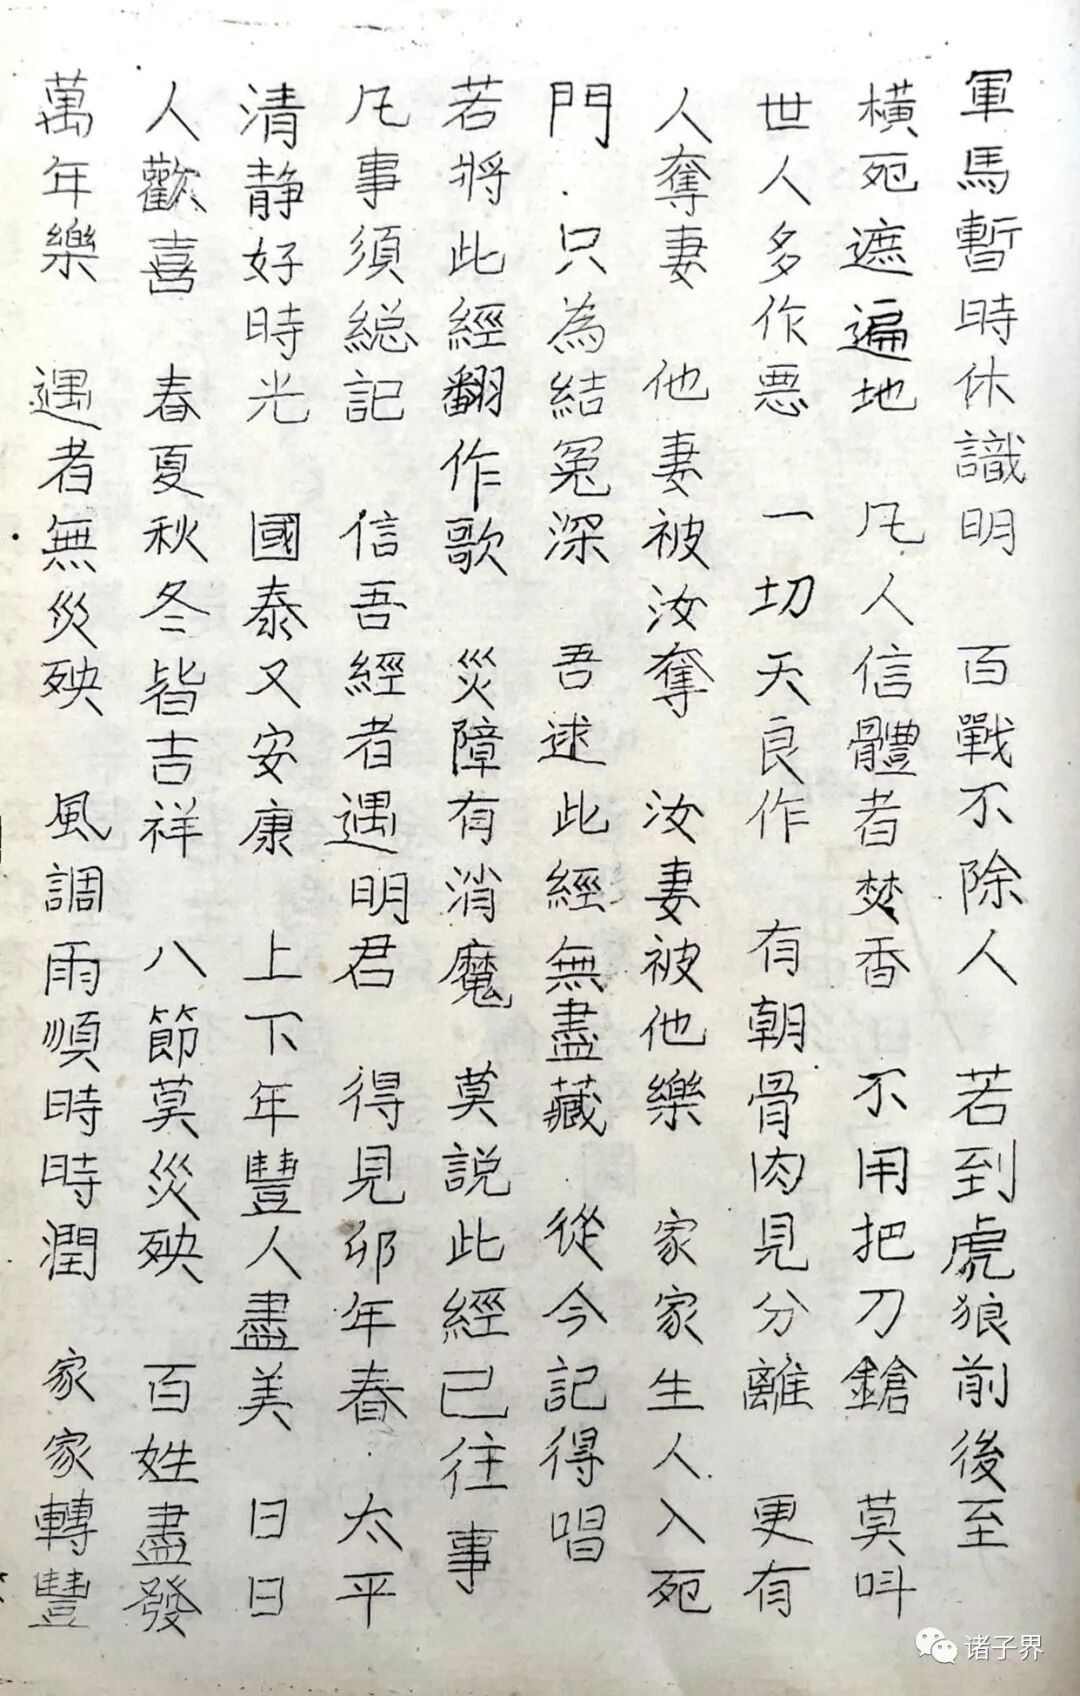 軍馬暫時休識明　百戰不除人　若到虎狼前後至
橫死遮遍地　凡人信體者焚香　不用把刀鎗　莫呌
世人多作惡　一切天良作　有朝骨肉見分離　更有
人奪妻　他妻被汝奪　汝妻被他樂　家家生人入死
門．只為結冤深　吾述此經無盡藏　從今記得唱
若將此經翻作歌　災障有消魔　莫説此經已往事
凡事須総記　信吾經者遇明君　得見卯年春．太平
清静好時光　國泰又安康　上下年豐人盡美　日日
人歡喜　春夏秋冬皆吉祥　八節莫災殃　百姓盡發
萬年樂　遇者無災殃　風調雨順時時潤　家家轉豐
诸子界